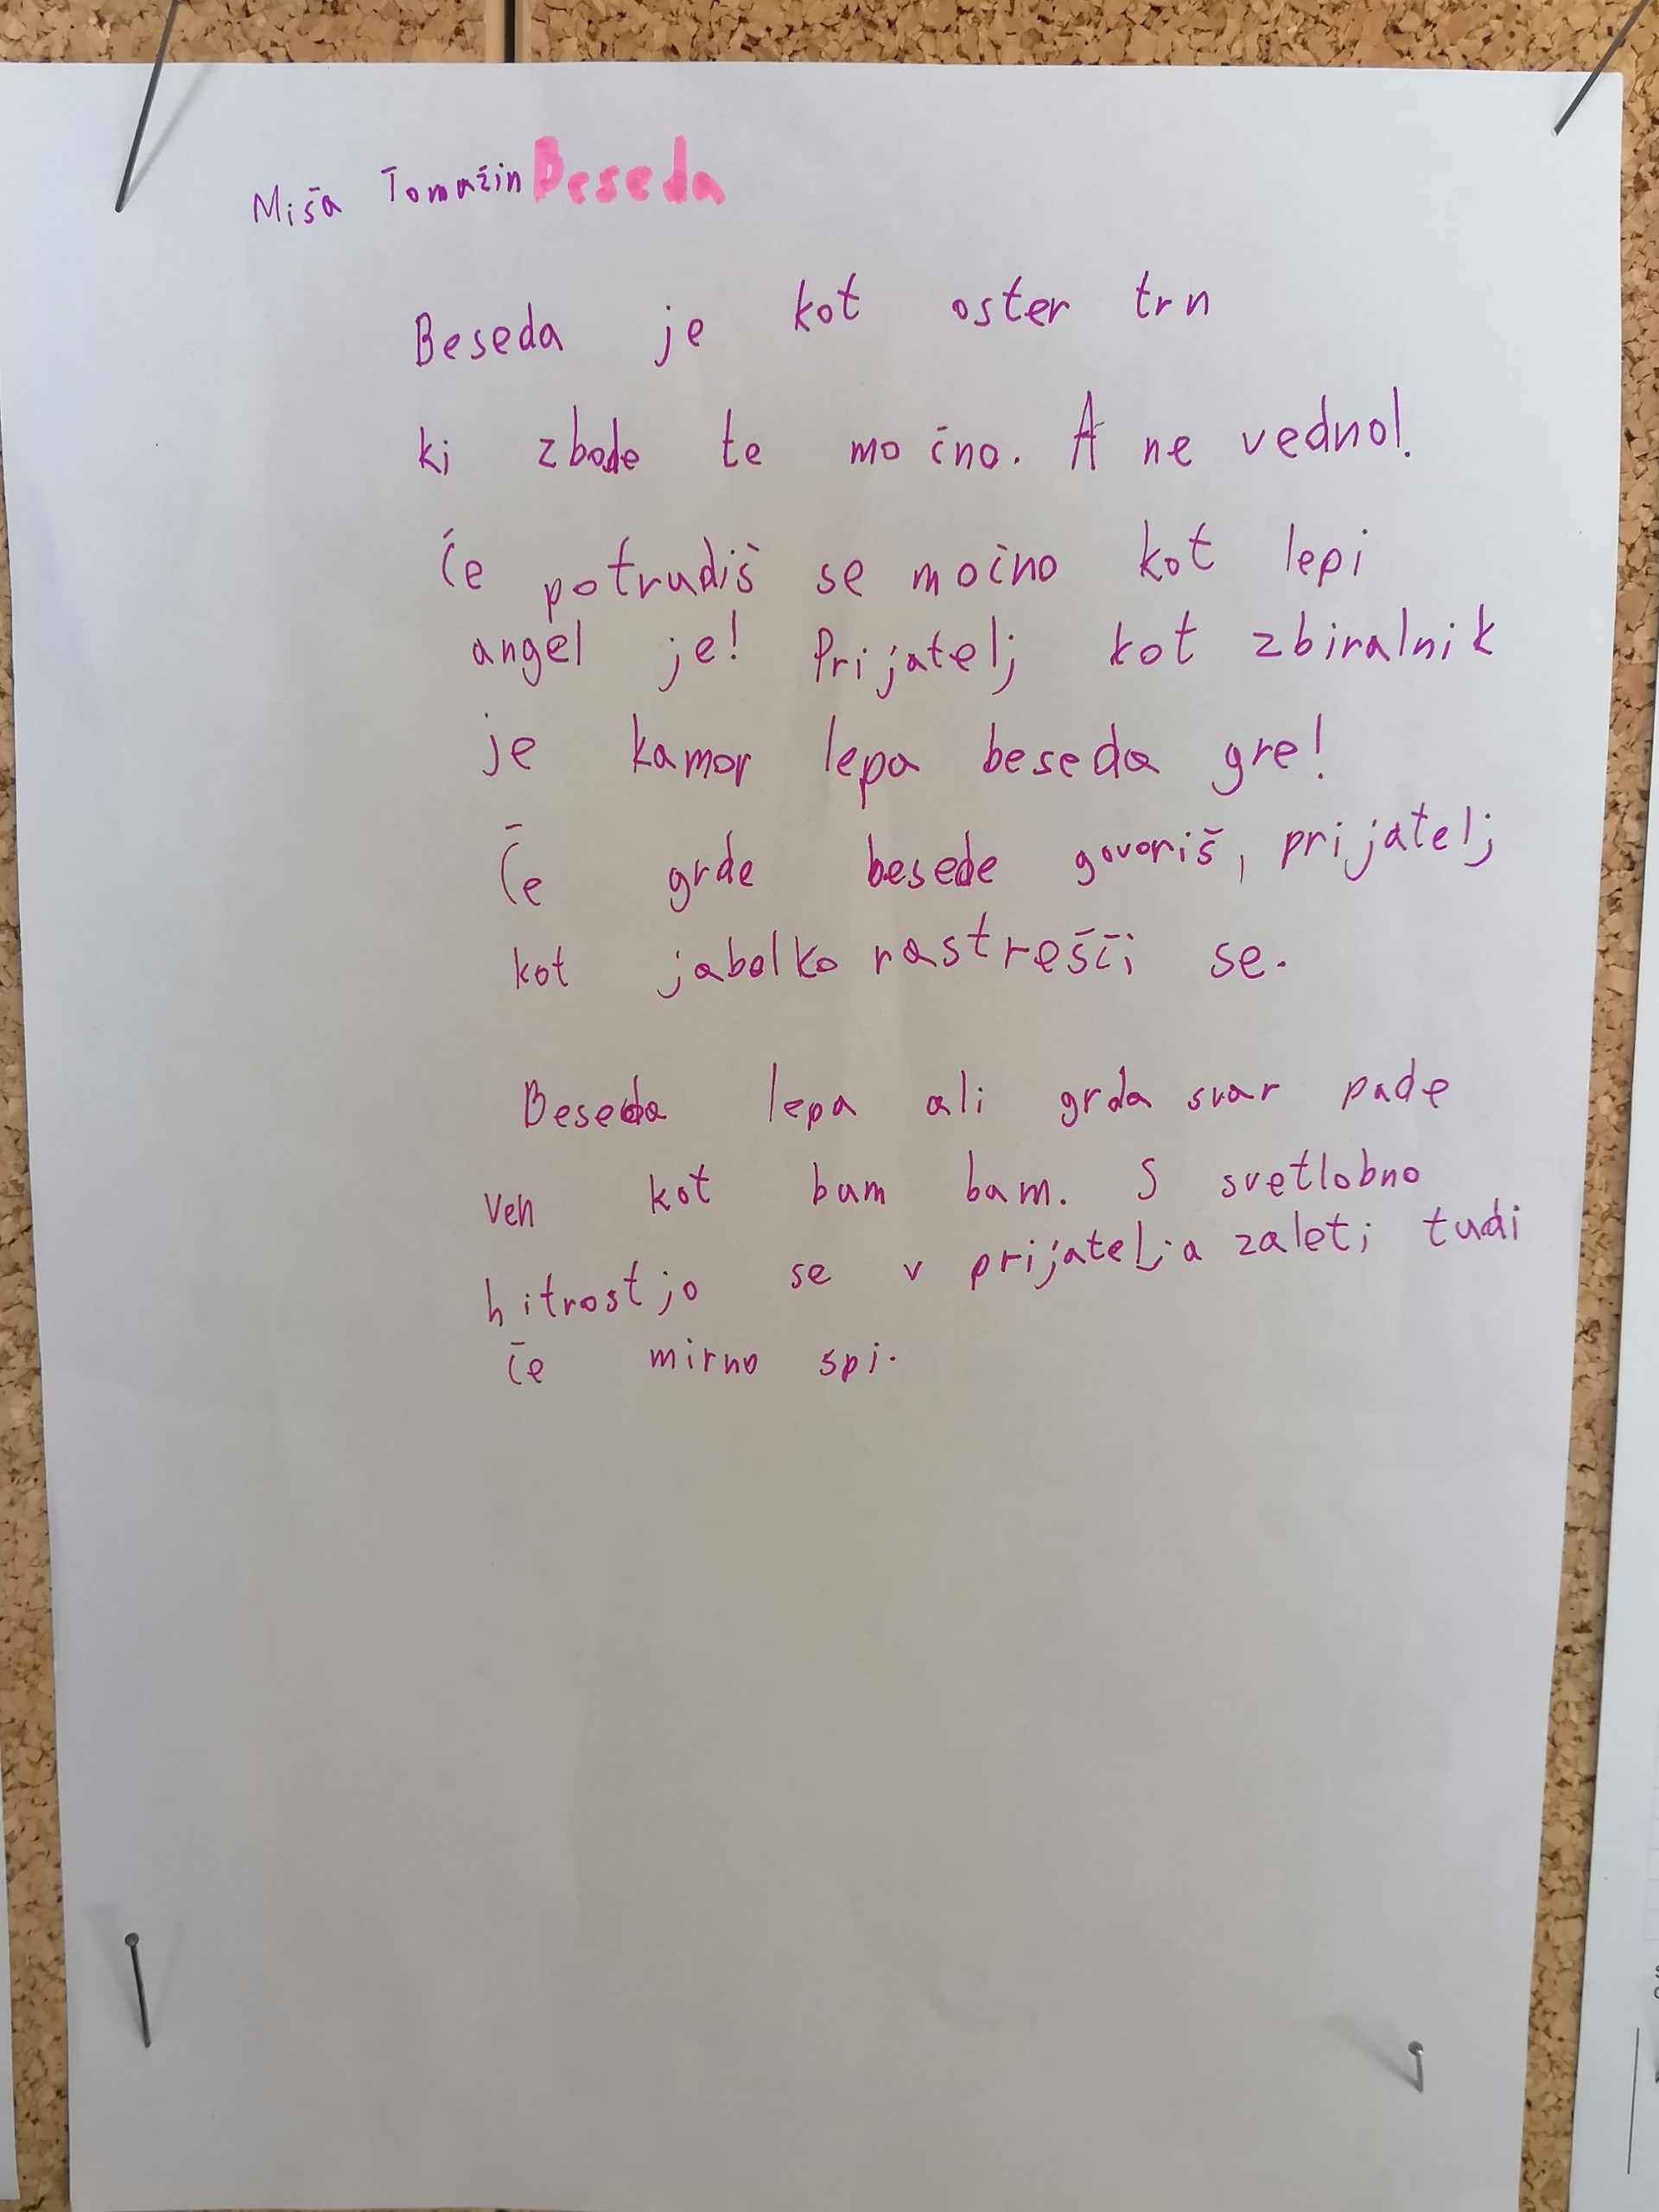 Miša Tomažin Beseda
Beseda je kot oster trn
ki zbode te močno. A ne vedno!.
Če potrudiš se močno kot lepi
angel je! Prijatelj kot zbiralnik
je kamor lepa beseda gre!
Če grde besede govoriš, prijatelj
kot jabolko rastrešči se.
Beseda lepa ali grda svar pade
ven kot bum bam. S svetlobno
hitrostjo se v prijatelja zaleti tudi
če mirno spi.